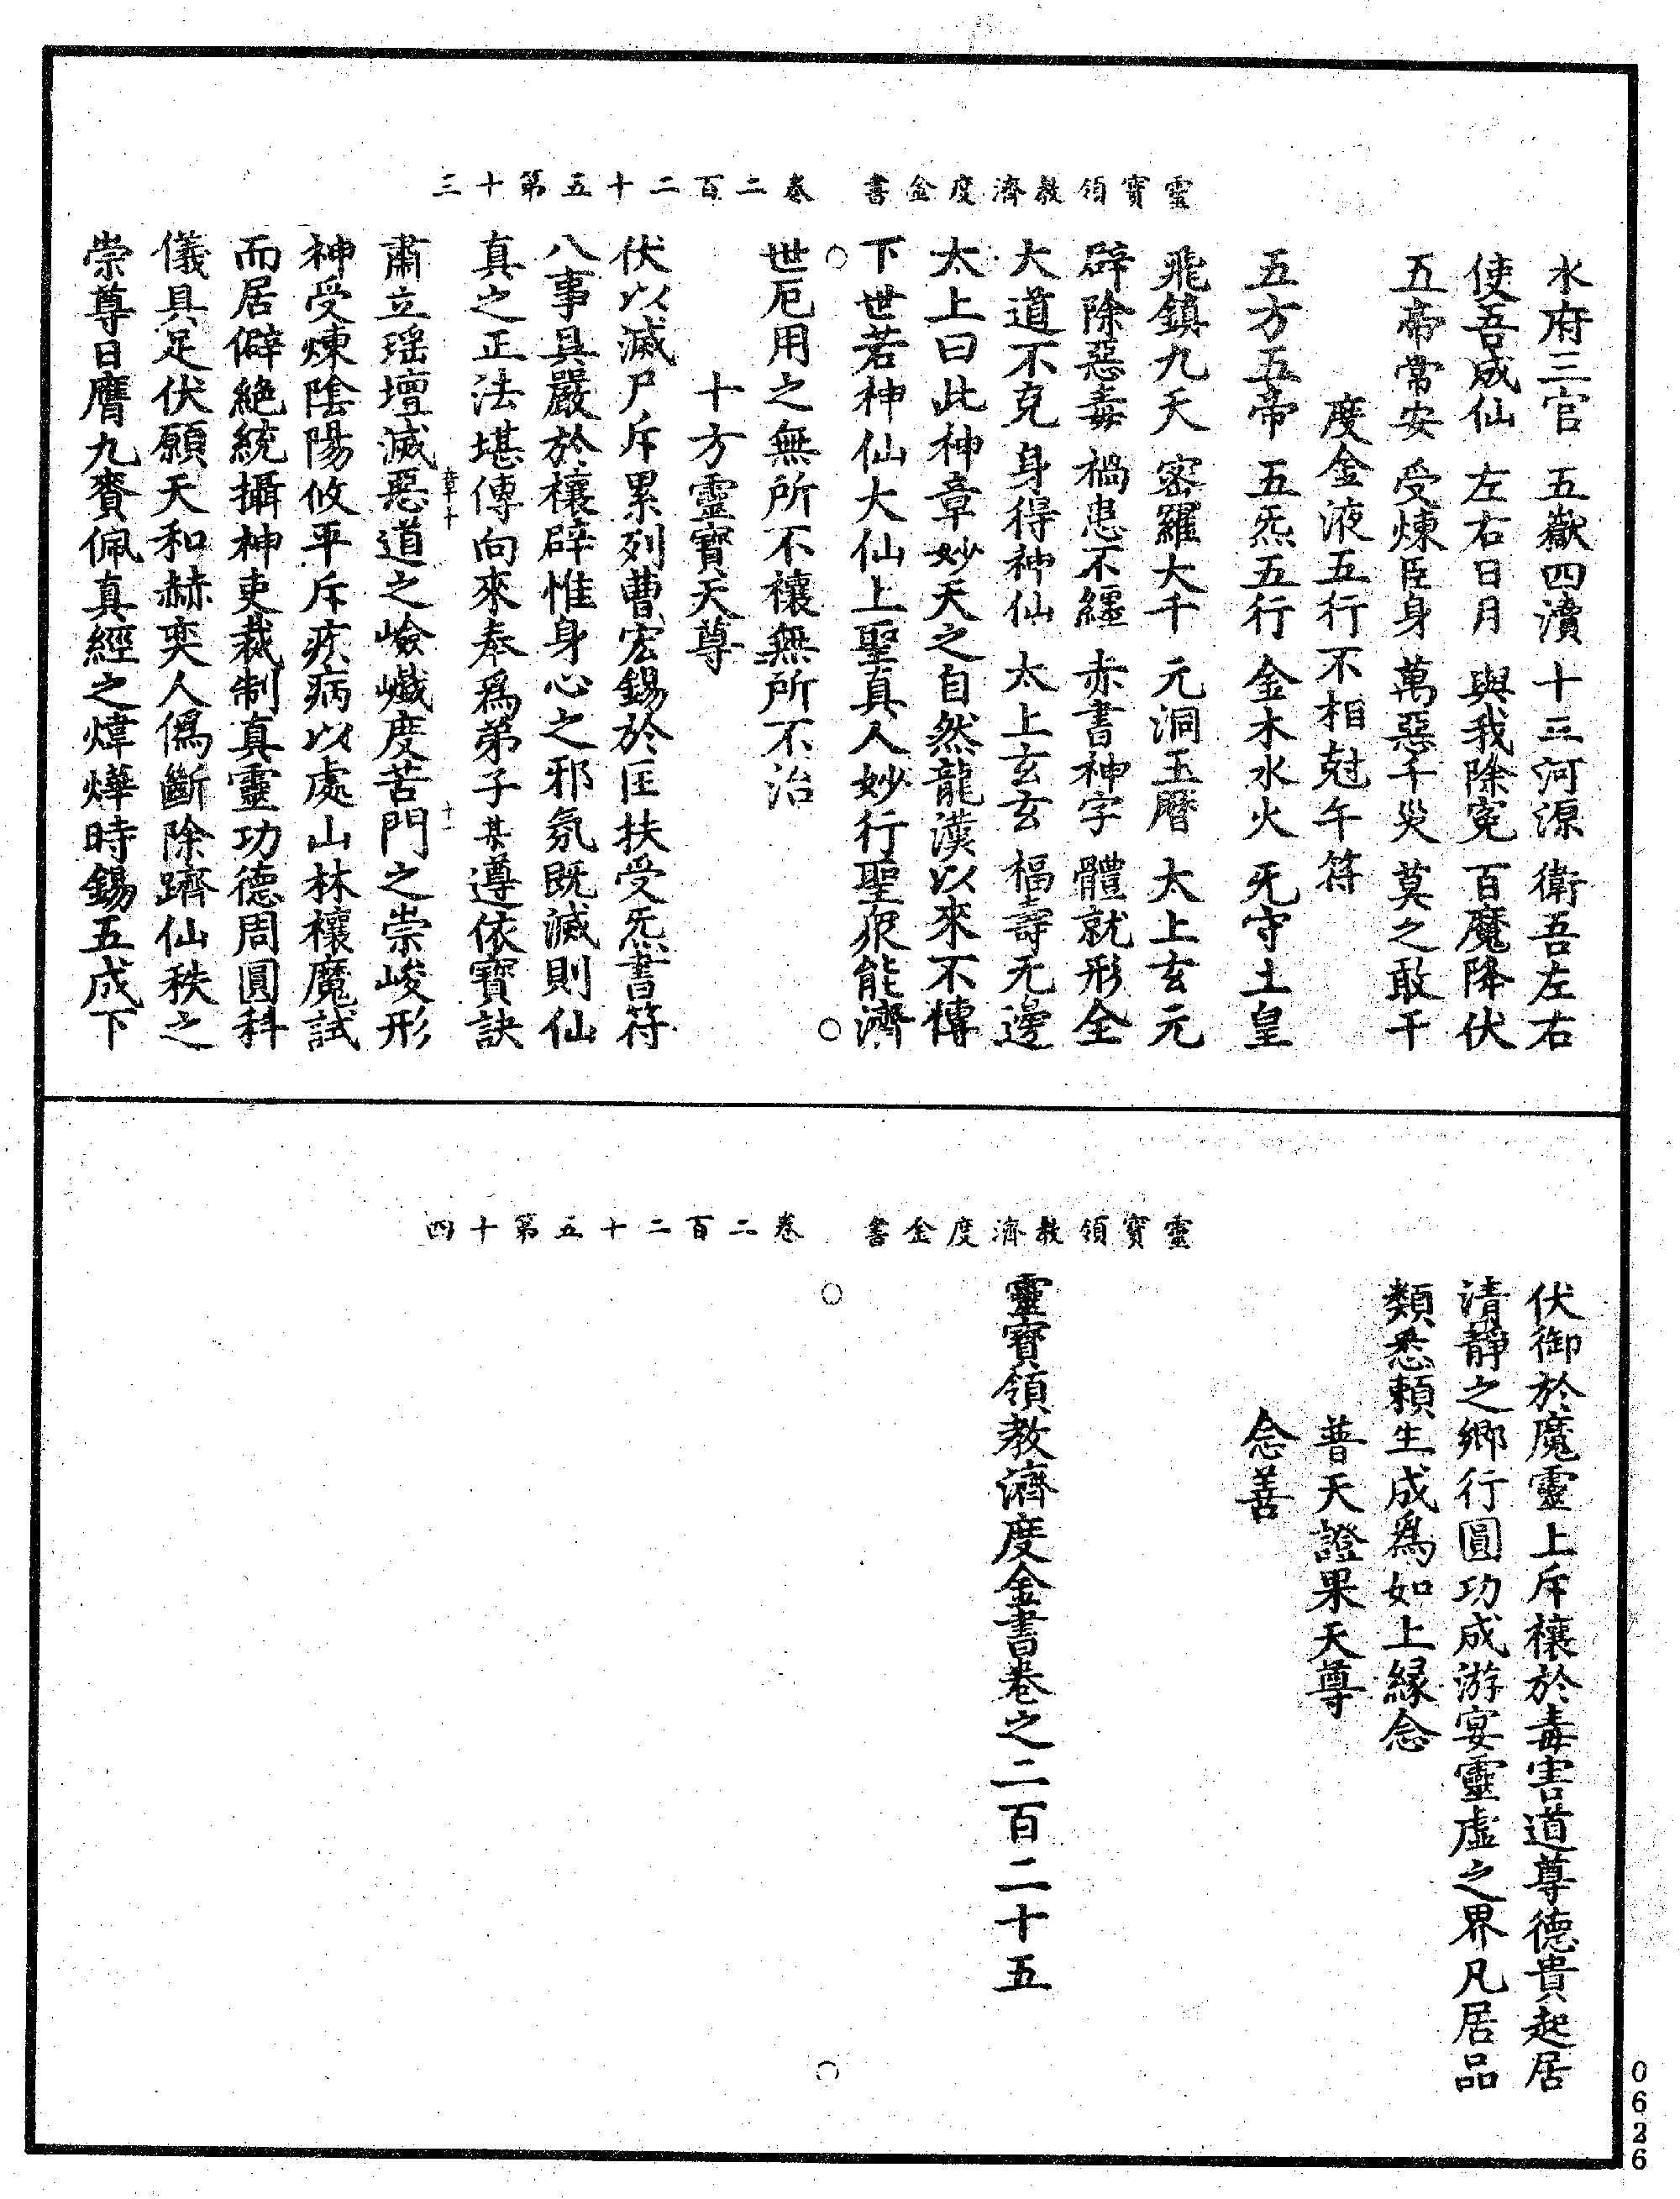 靈寶領教濟度金書　卷二百二十五第十三
水府三官　五嶽四瀆　十二河源　衛吾左右
使吾成仙　左右日月　與我除冤　百魔降伏
五帝常安　受煉臣身　萬惡千災　莫之敢干
度金液五行不相尅午符
五方五帝　五炁五行　金木水火　死守土皇
飛鎮九天　密羅大千　元洞玉曆　太上玄元
辟除惡毒　禍患不纏　赤書神字　體就形全
大道不克　身得神仙　太上玄玄　福壽无邊
太上曰此神章妙天之自然龍漢以來不傳
下世若神仙大仙上聖真人妙行聖衆能濟
世厄用之無所不禳無所不治
十方靈寶天尊
伏以滅尸斥累列曹宏錫於匡扶受炁書符
八事具嚴於禳辟惟身心之邪氛既滅則仙
真之正法堪傳向來奉爲弟子某遵依寶訣
章十
十一
肅立瑶壇滅惡道之嶮巇度苦門之崇峻形
神受煉陰陽攸平斥疾病以處山林禳魔試
而居僻絶統攝神吏裁制真靈功德周圓科
儀具足伏願天和赫奕人僞斷除躋仙秩之
崇尊日膺九賚佩真經之煒燁時錫五成下
靈寶領教濟度金書　卷二百二十五第十四
伏御於魔靈上斥禳於毒害道尊德貴起居
清靜之鄉行圓功成游宴靈虛之界凡居品
類悉賴生成爲如上緣念
普天證果天尊
念善
靈寶領教濟度金書卷之二百二十五
0626